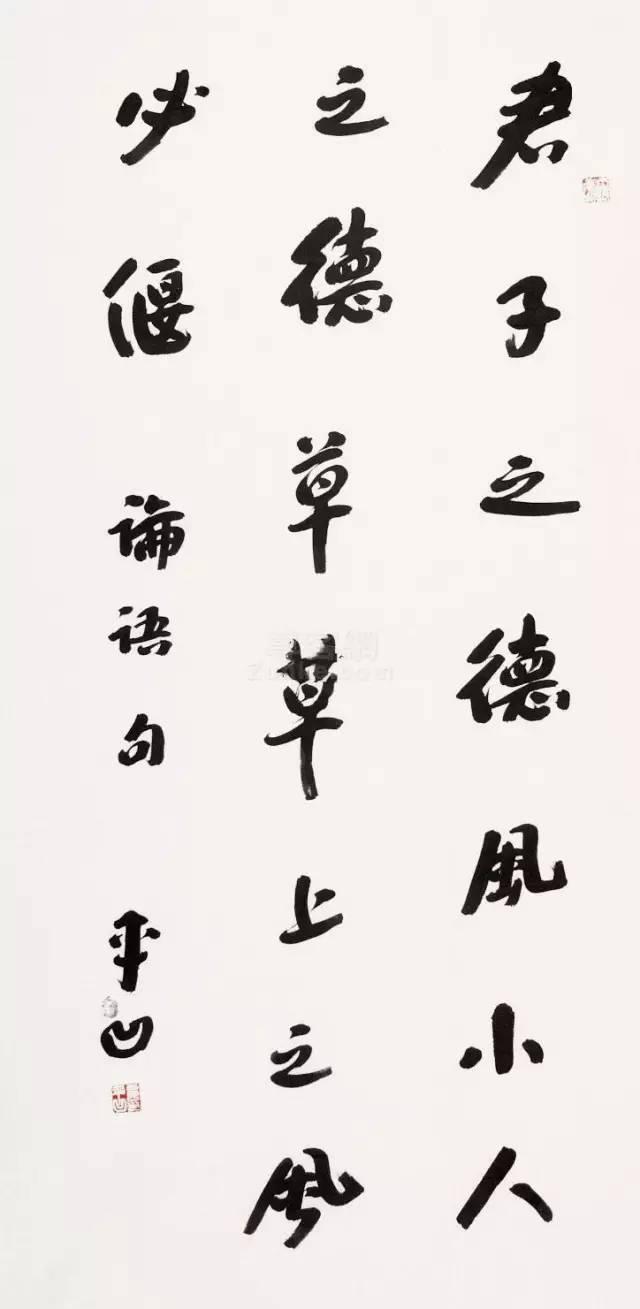 君子之德風小人
之德草草上之風
必偃 論语句 平凹